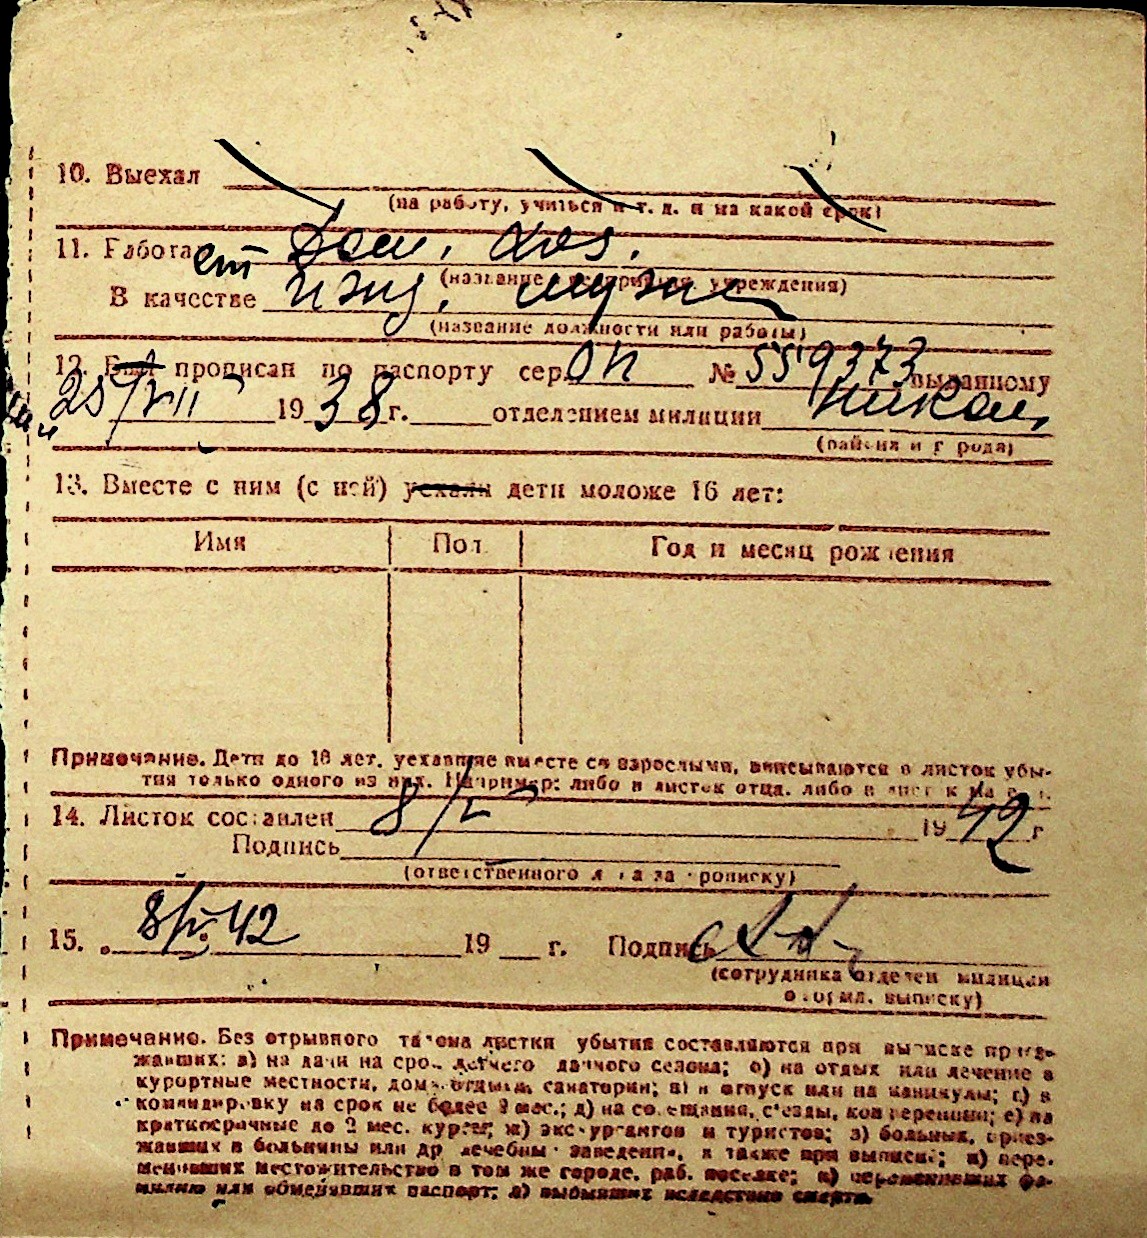 10. Выехал
(на работу, учиться и т. д. и на какой срок)
11. Работает Дом. хоз.
(название предприятия, учреждения)
В качестве ижд. мужа
(название должности или работы)
12. Был прописан по паспорту сер. ОП № 559373 выданному
25/VII 1938 г. отделением милиции Никол.
(района и города)
13. Вместе с ним (с ней) уехали дети моложе 16 лет:
Имя Пол Год и месяц рождения
Примечание. Дети до 16 лет, уехавшие вместе со взрослыми, вписываются в листок убы-
тия только одного из них. Например: либо в листок отца, либо в листок
14. Листок составлен 8/V 1942 г
Подпись
(ответственного за прописку)
15. 8/V 42 19 г. Подпись
(сотрудника отделен милиции
оформл. выписку)
Примечание. Без отрывного талона листки убытия составляются при выписке приез-
жавших: а) на дачи на срок летнего дачного сезона; б) на отдых или лечение в
курортные местности, дома отдыха, санатории; в) в отпуск или на каникулы; г) в
командировку на срок не более 2 мес.; д) на совещания, съезды, конференции; е) на
краткосрочные до 2 мес. курсы; ж) экскурсантов и туристов; з) больных, приез-
жавших в больницы или др лечебные заведения, а также при выписке; и) пере-
менивших местожительство в том же городе, раб. поселке; к) переменивших фа-
милию или обменявших паспорт; л) выбывших вследствие смерти.